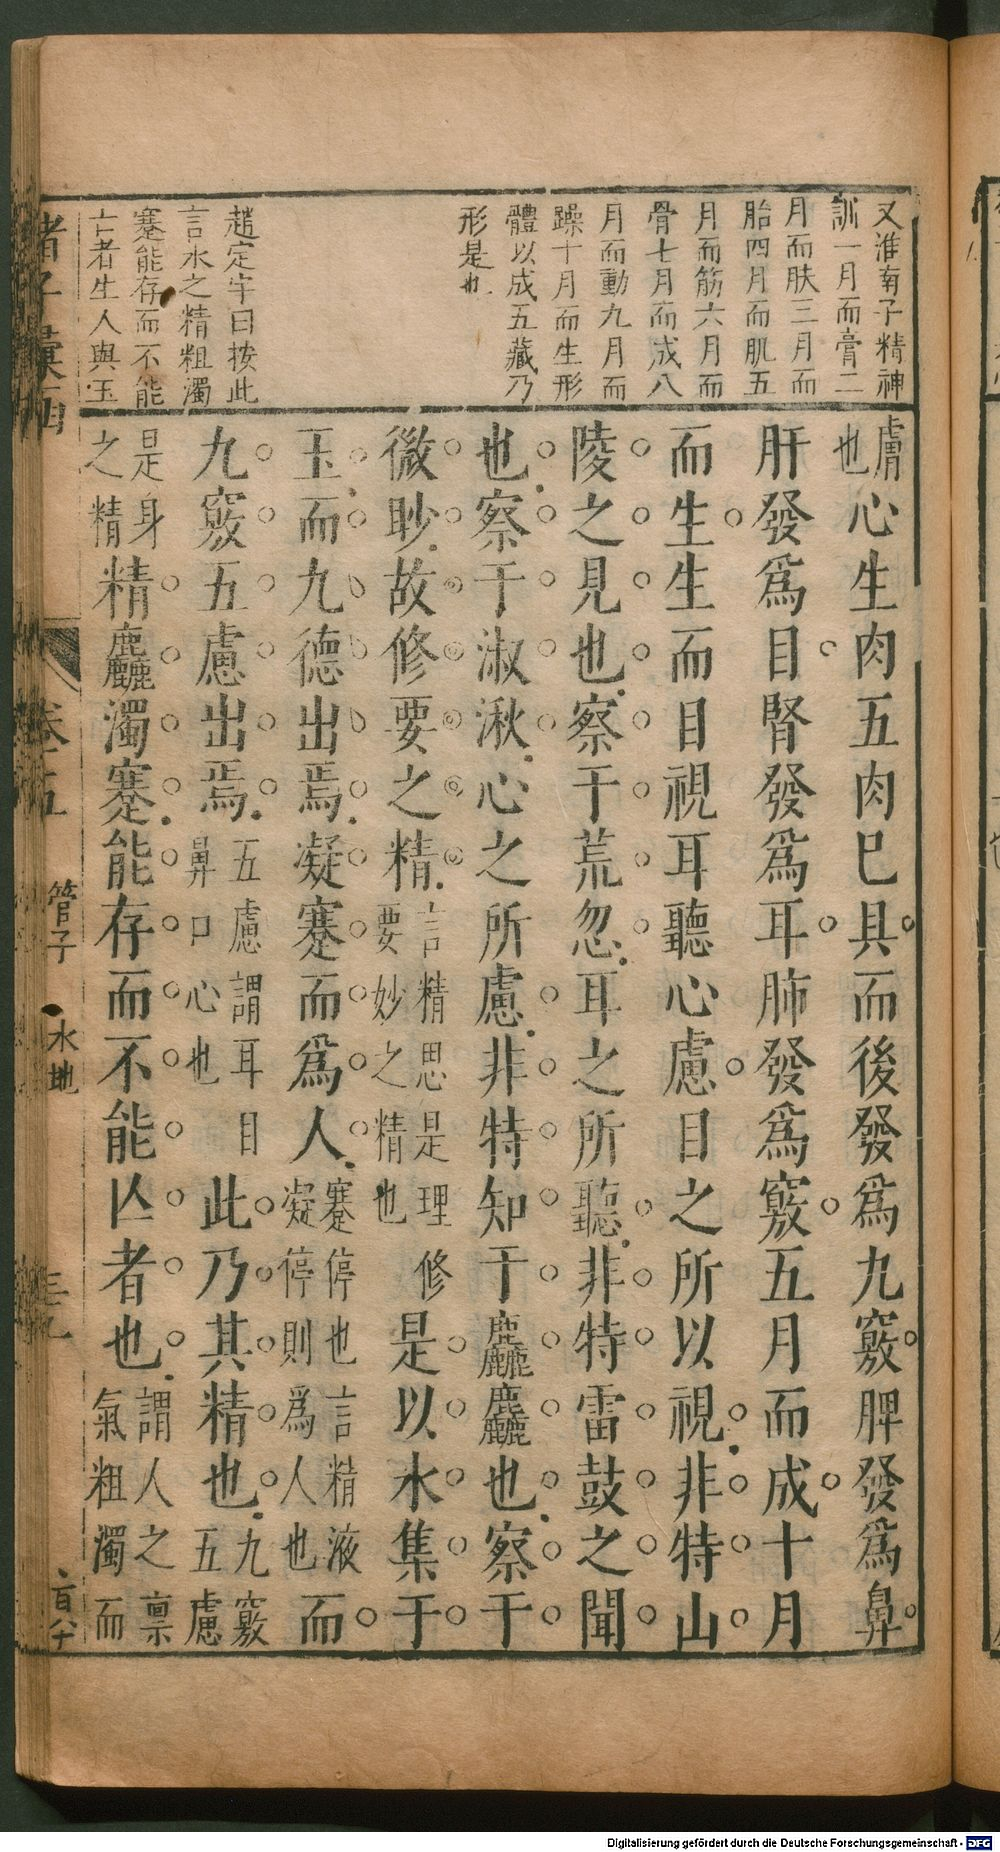 又淮南子精神
訓一月而膏二
月而胅三月而
胎四月而肌五
月而筋六月而
骨七月而成八
月而動九月而
躁十月而生形
體以成五藏乃
形是也
趙定宇曰按此
言水之精粗濁
蹇能存而不能
亡者生人與玉
膚也心生肉五肉已具而後發爲九竅脾發爲鼻
肝發爲目腎發爲耳肺發爲竅五月而成十月
而生生而目視耳聽心慮目之所以視非特山
陵之見也察于荒忽耳之所聽非特雷鼓之聞
也察于淑湫心之所慮非特知于麤麤也察于
微眇故修要之精言精思是理修要妙之精也是以水集于
玉而九德出焉凝蹇而爲人蹇停也言精液凝停則爲人也而
九竅五慮出焉五慮謂耳目鼻口心也此乃其精也九竅五慮
是身之精精麤濁蹇能存而不能亾者也謂人之禀氣粗濁而
諸子彙函
卷五
管子
水地
三九
百八十
Digitalisierung gefördert durch die Deutsche Forschungsgemeinschaft - DFG